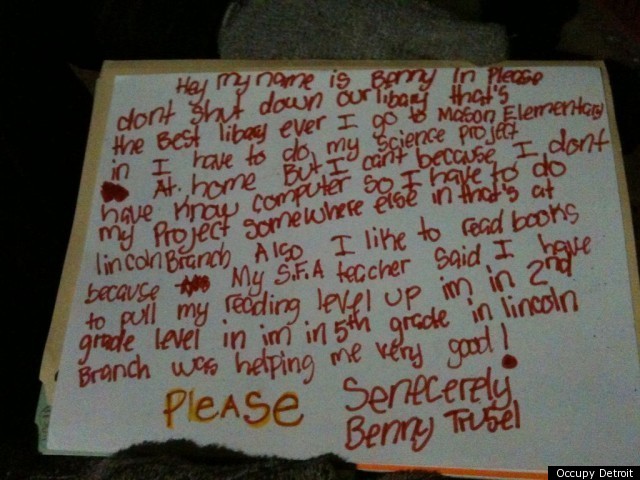 Hey my name is Benny In Please
dont shut down our libary that's
the Best libary ever I go to Mason Elementary
in I have to do my science project
At home But I can't because I dont
have know computer so I have to do
my Project somewhere else in that's at
lincoln Branch Also I like to read books
because My S.F.A teacher said I have
to pull my reading level up im in 2nd
grade level in im in 5th grade in lincoln
Branch was helping me very good!
PLEASE Senecerely
Benny Trusel
Occupy Detroit